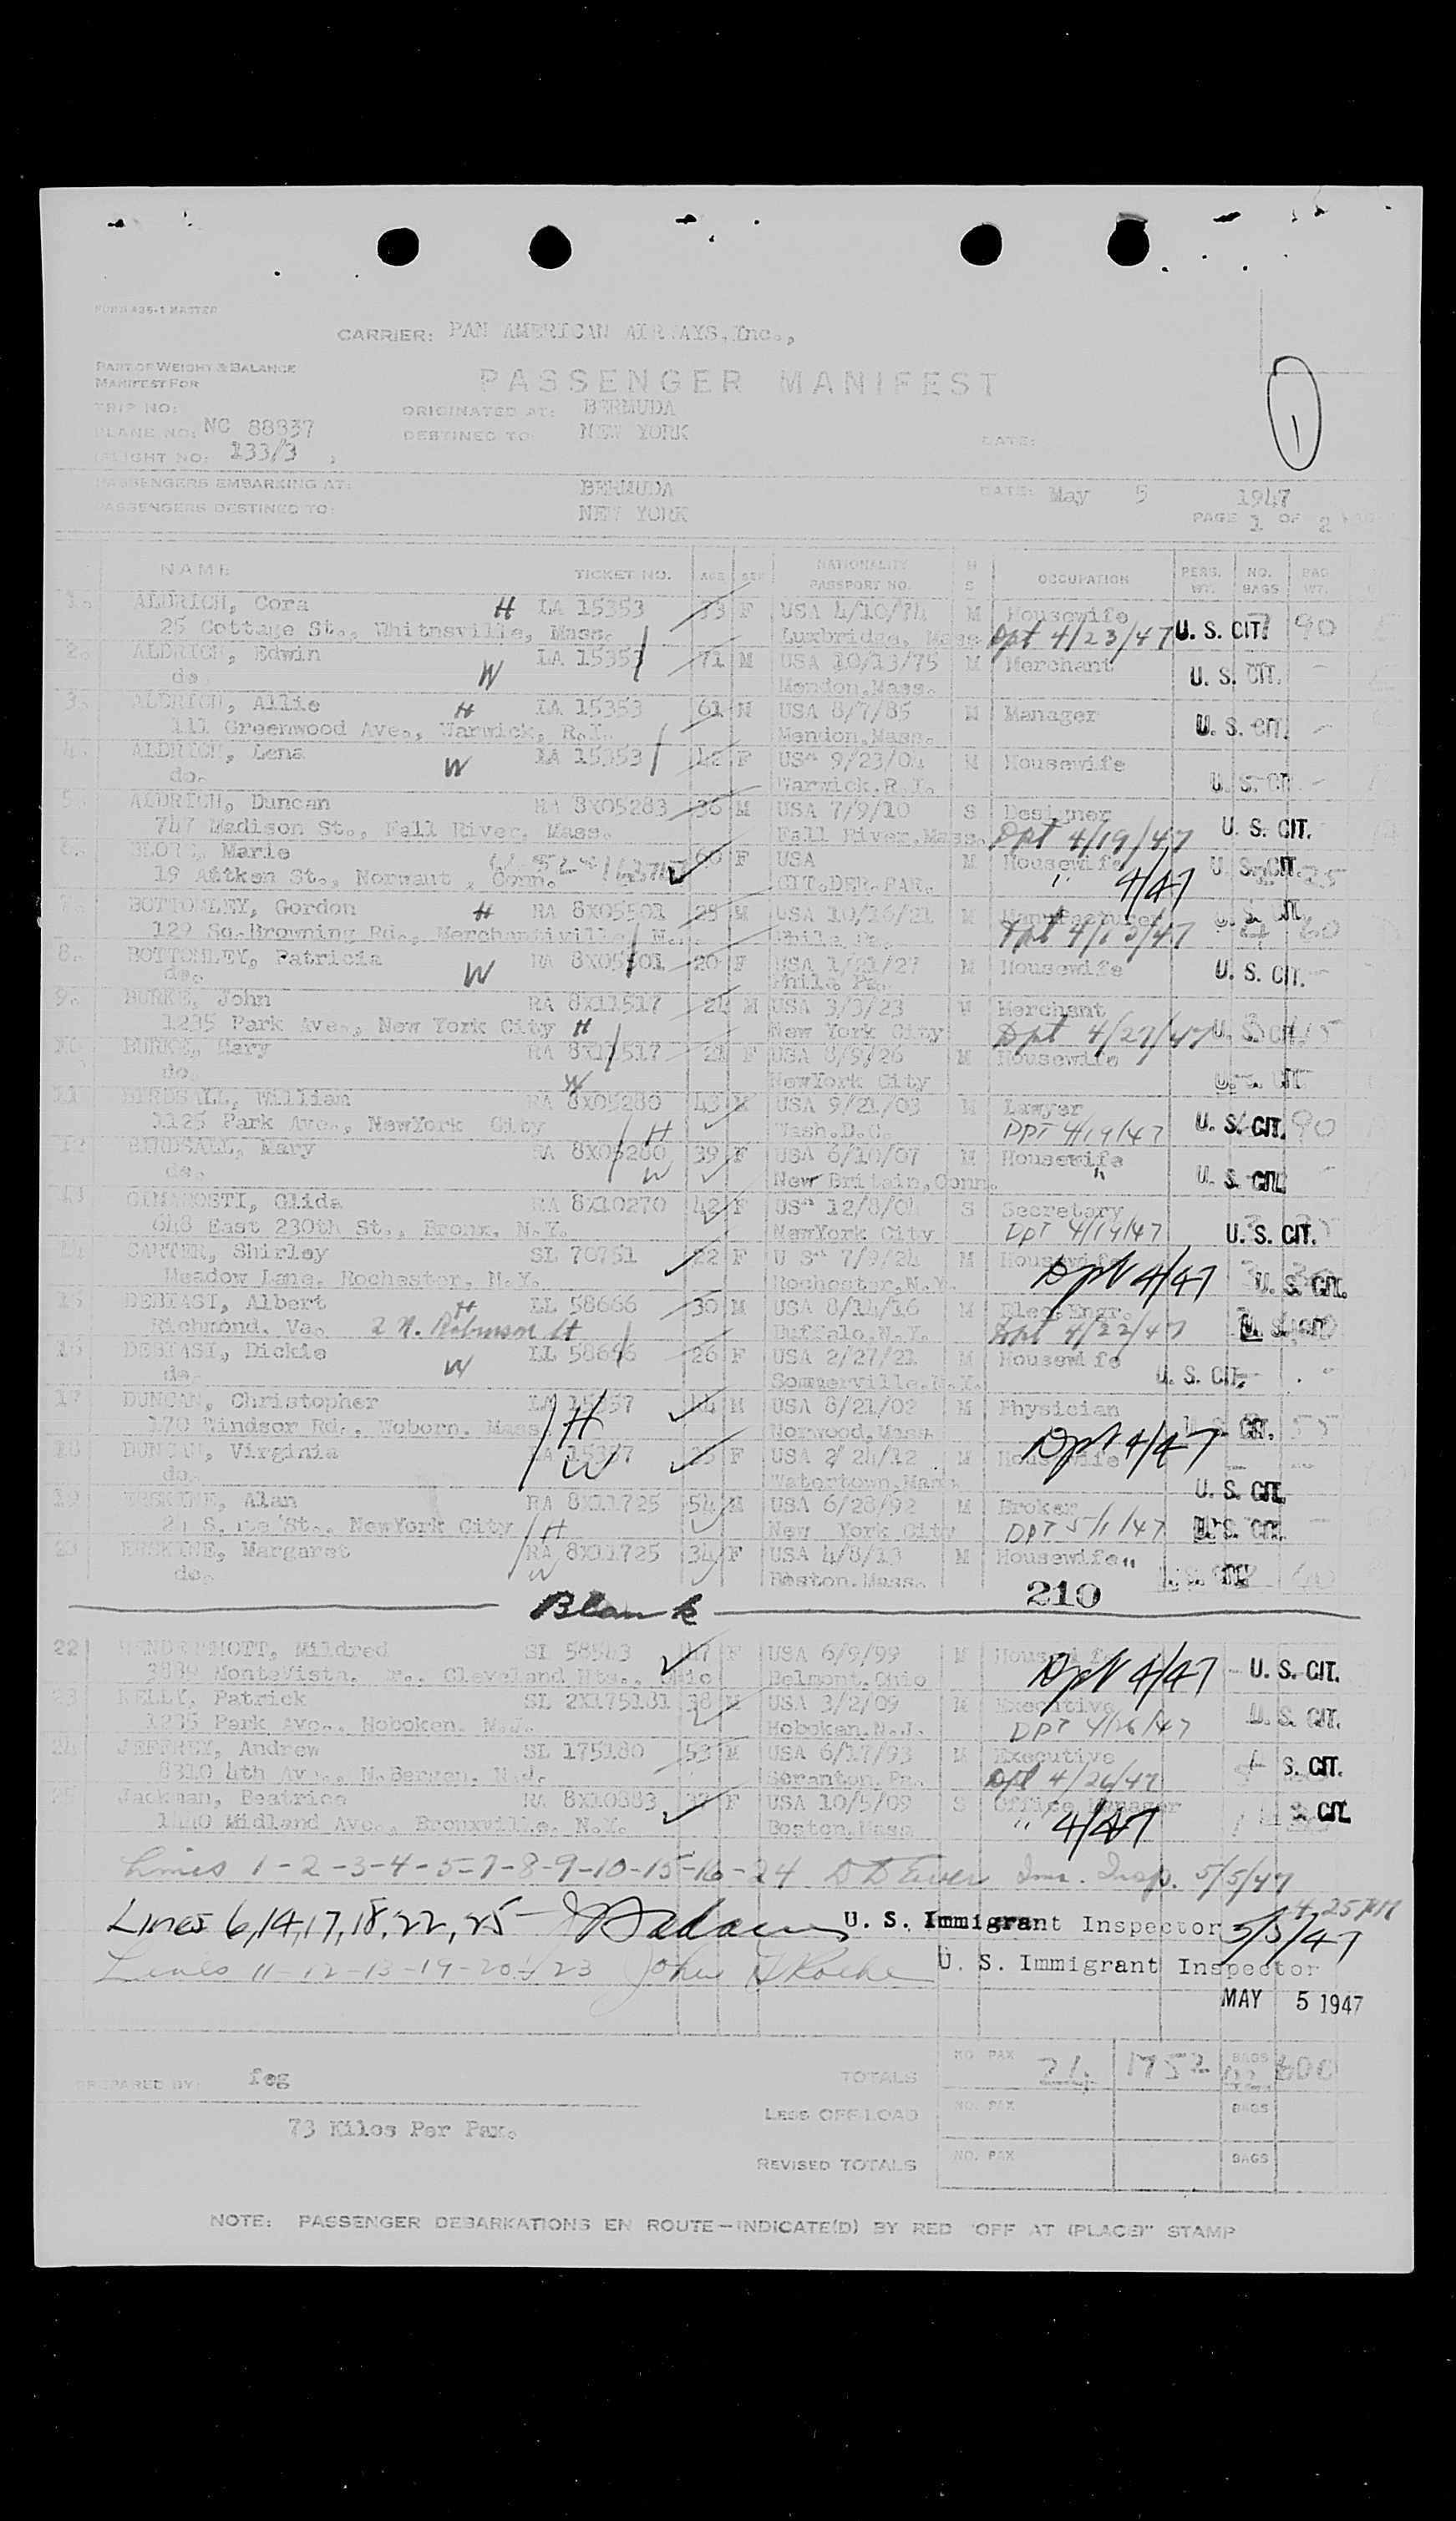 FORM #35-1 MASTER
CARRIER: PAN AMERICAN AIRWAYS, Inc.,
PART OF WEIGHT & BALANCE
MANIFEST FOR
PASSENGER MANIFEST
1
TRIP NO:
ORIGINATED AT: BERMUDA
PLANE NO: NC 88837
DESTINED TO: NEW YORK
DATE:
FLIGHT NO: 133/3
PASSENGERS EMBARKING AT: BERMUDA DATE: May 5 1947
PASSENGERS DESTINED TO: NEW YORK PAGE 1 OF 2
NAME TICKET NO. AGE SEX NATIONALITY PASSPORT NO. M S OCCUPATION PERS. WT. NO. BAGS BAG WT.
1. ALDRICH, Cora H LA 15353 73 F USA 4/10/74 M Housewife U. S. CIT. 90
25 Cottage St., Whitnsville, Mass. Luxbridge, Mass. Dpt 4/23/47
2. ALDRICH, Edwin W LA 15353 71 M USA 10/13/75 M Merchant U. S. CIT.
do Mendon, Mass.
3. ALDRICH, Allie H LA 15353 61 M USA 8/7/85 M Manager U. S. CIT.
111 Greenwood Ave., Warwick, R.I. Mendon, Mass.
4. ALDRICH, Lena W LA 15353 42 F USA 9/23/04 M Housewife U. S. CIT.
do. Warwick, R.I.
5. ALDRICH, Duncan RA 8X05283 36 M USA 7/9/10 S Designer U. S. CIT.
747 Madison St., Fall River, Mass. Fall River, Mass. Dpt 4/19/47
6. Marie 60 F USA M Housewife U. S. CIT. 25
19 Aitken St., Conn. CIT. DER. PAR. " 4/47
7. BOTTOMLEY, Gordon H RA 8X05501 25 M USA 10/16/21 M Manufacturer 60
129 So. Browning Rd., Merchantiville Phila Pa. Dpt 4/13/47
8. BOTTOMLEY, Patricia W RA 8X05501 20 F USA 1/21/27 M Housewife U. S. CIT.
do. Phila Pa.
9. BURKE, John RA 8X11517 24 M USA 3/3/23 M Merchant
1235 Park Ave., New York City H New York City Dpt 4/27/47 U. S. CIT.
10 BURKE, Mary RA 8X11517 21 F USA 8/9/26 M Housewife
do. W NewYork City U. S. CIT.
11 BIRDSALL, William RA 8X05280 43 M USA 9/21/03 M Lawyer U. S. CIT. 90
1125 Park Ave., NewYork City H Wash. D.C. DPT 4/19/47
12 BIRDSALL, Mary RA 8X05280 39 F USA 6/10/07 M Housewife U. S. CIT.
do. W New Britain, Conn. "
13 CIMAROSTI, Glida RA 8X10270 42 F USA 12/8/04 S Secretary
648 East 230th St., Bronx, N.Y. NewYork City DPT 4/19/47 U. S. CIT.
14 CARTER, Shirley SL 70751 22 F USA 7/9/24 M Housewife
Meadow Lane, Rochester, N.Y. Rochester, N.Y. Dpt 4/47 U. S. CIT.
15 DEBIASI, Albert H LL 58666 30 M USA 8/14/16 M Elec. Engr.
Richmond, Va. 2 N. Robinson St Buffalo, N.Y. Dpt 4/22/47 U. S. CIT.
16 DEBIASI, Dickie W LL 58666 26 F USA 2/27/21 M Housewife
do. Sommerville, N.Y. U. S. CIT.
17 DUNCAN, Christopher LA 15357 44 M USA 8/21/02 M Physician
170 Windsor Rd., Woborn, Mass H Norwood, Mass U. S. CIT. 55
18 DUNCAN, Virginia LA 15357 F USA 2/24/12 M Housewife Dpt 4/47
do. W Watertown, Mass U. S. CIT.
19 ERSKINE, Alan RA 8X11725 54 M USA 6/28/92 M Broker
St., NewYork City H New York City DPT 5/1/47 U. S. CIT.
20 ERSKINE, Margaret RA 8X11725 34 F USA 4/8/13 M Housewife "
do. W Boston, Mass. 210
Blank
22 Mildred SI 58543 47 F USA 6/9/99 M Housewife
MonteVista, Dr., Cleveland Hts., Ohio Belmont, Ohio Dpt 4/47 U. S. CIT.
23 KELLY, Patrick SL 2X175181 38 M USA 3/2/09 M Executive
1235 Park Ave., Hoboken, N.J. Hoboken, N.J. DPT 4/26/47 U. S. CIT.
24 JEFFREY, Andrew SL 175180 53 M USA 6/17/93 M Executive
8310 4th Ave., N. Bergen, N.J. Scranton, Pa. Dpt 4/26/47 S. CIT.
25 Jackman, Beatrice RA 8X10883 37 F USA 10/5/09 S Office Manager
Midland Ave., Bronxville, N.Y. Boston, Mass " 4/47 S. CIT.
Lines 1-2-3-4-5-7-8-9-10-15-16-24 Imm. Insp. 5/5/47
4,25 PM
Lines 6,14,17,18,22,25 U. S. Immigrant Inspector 5/5/47
Lines 11-12-13-19-20-23 John U. S. Immigrant Inspector
MAY 5 1947
PREPARED BY: feg
TOTALS NO. PAX 24 1752 BAGS 600
73 Kilos Per Pax.
LESS OFF-LOAD NO. PAX BAGS
REVISED TOTALS NO. PAX BAGS
NOTE: PASSENGER DEBARKATIONS EN ROUTE—INDICATE(D) BY RED "OFF AT (PLACE)" STAMP